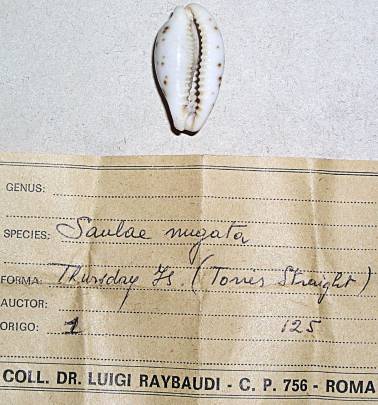 GENUS:
SPECIES: Saulae nugata
FORMA: Thursday Is. (Torres Straight)
AUCTOR:
ORIGO: 1 125
COLL. DR. LUIGI RAYBAUDI - C. P. 756 - ROMA